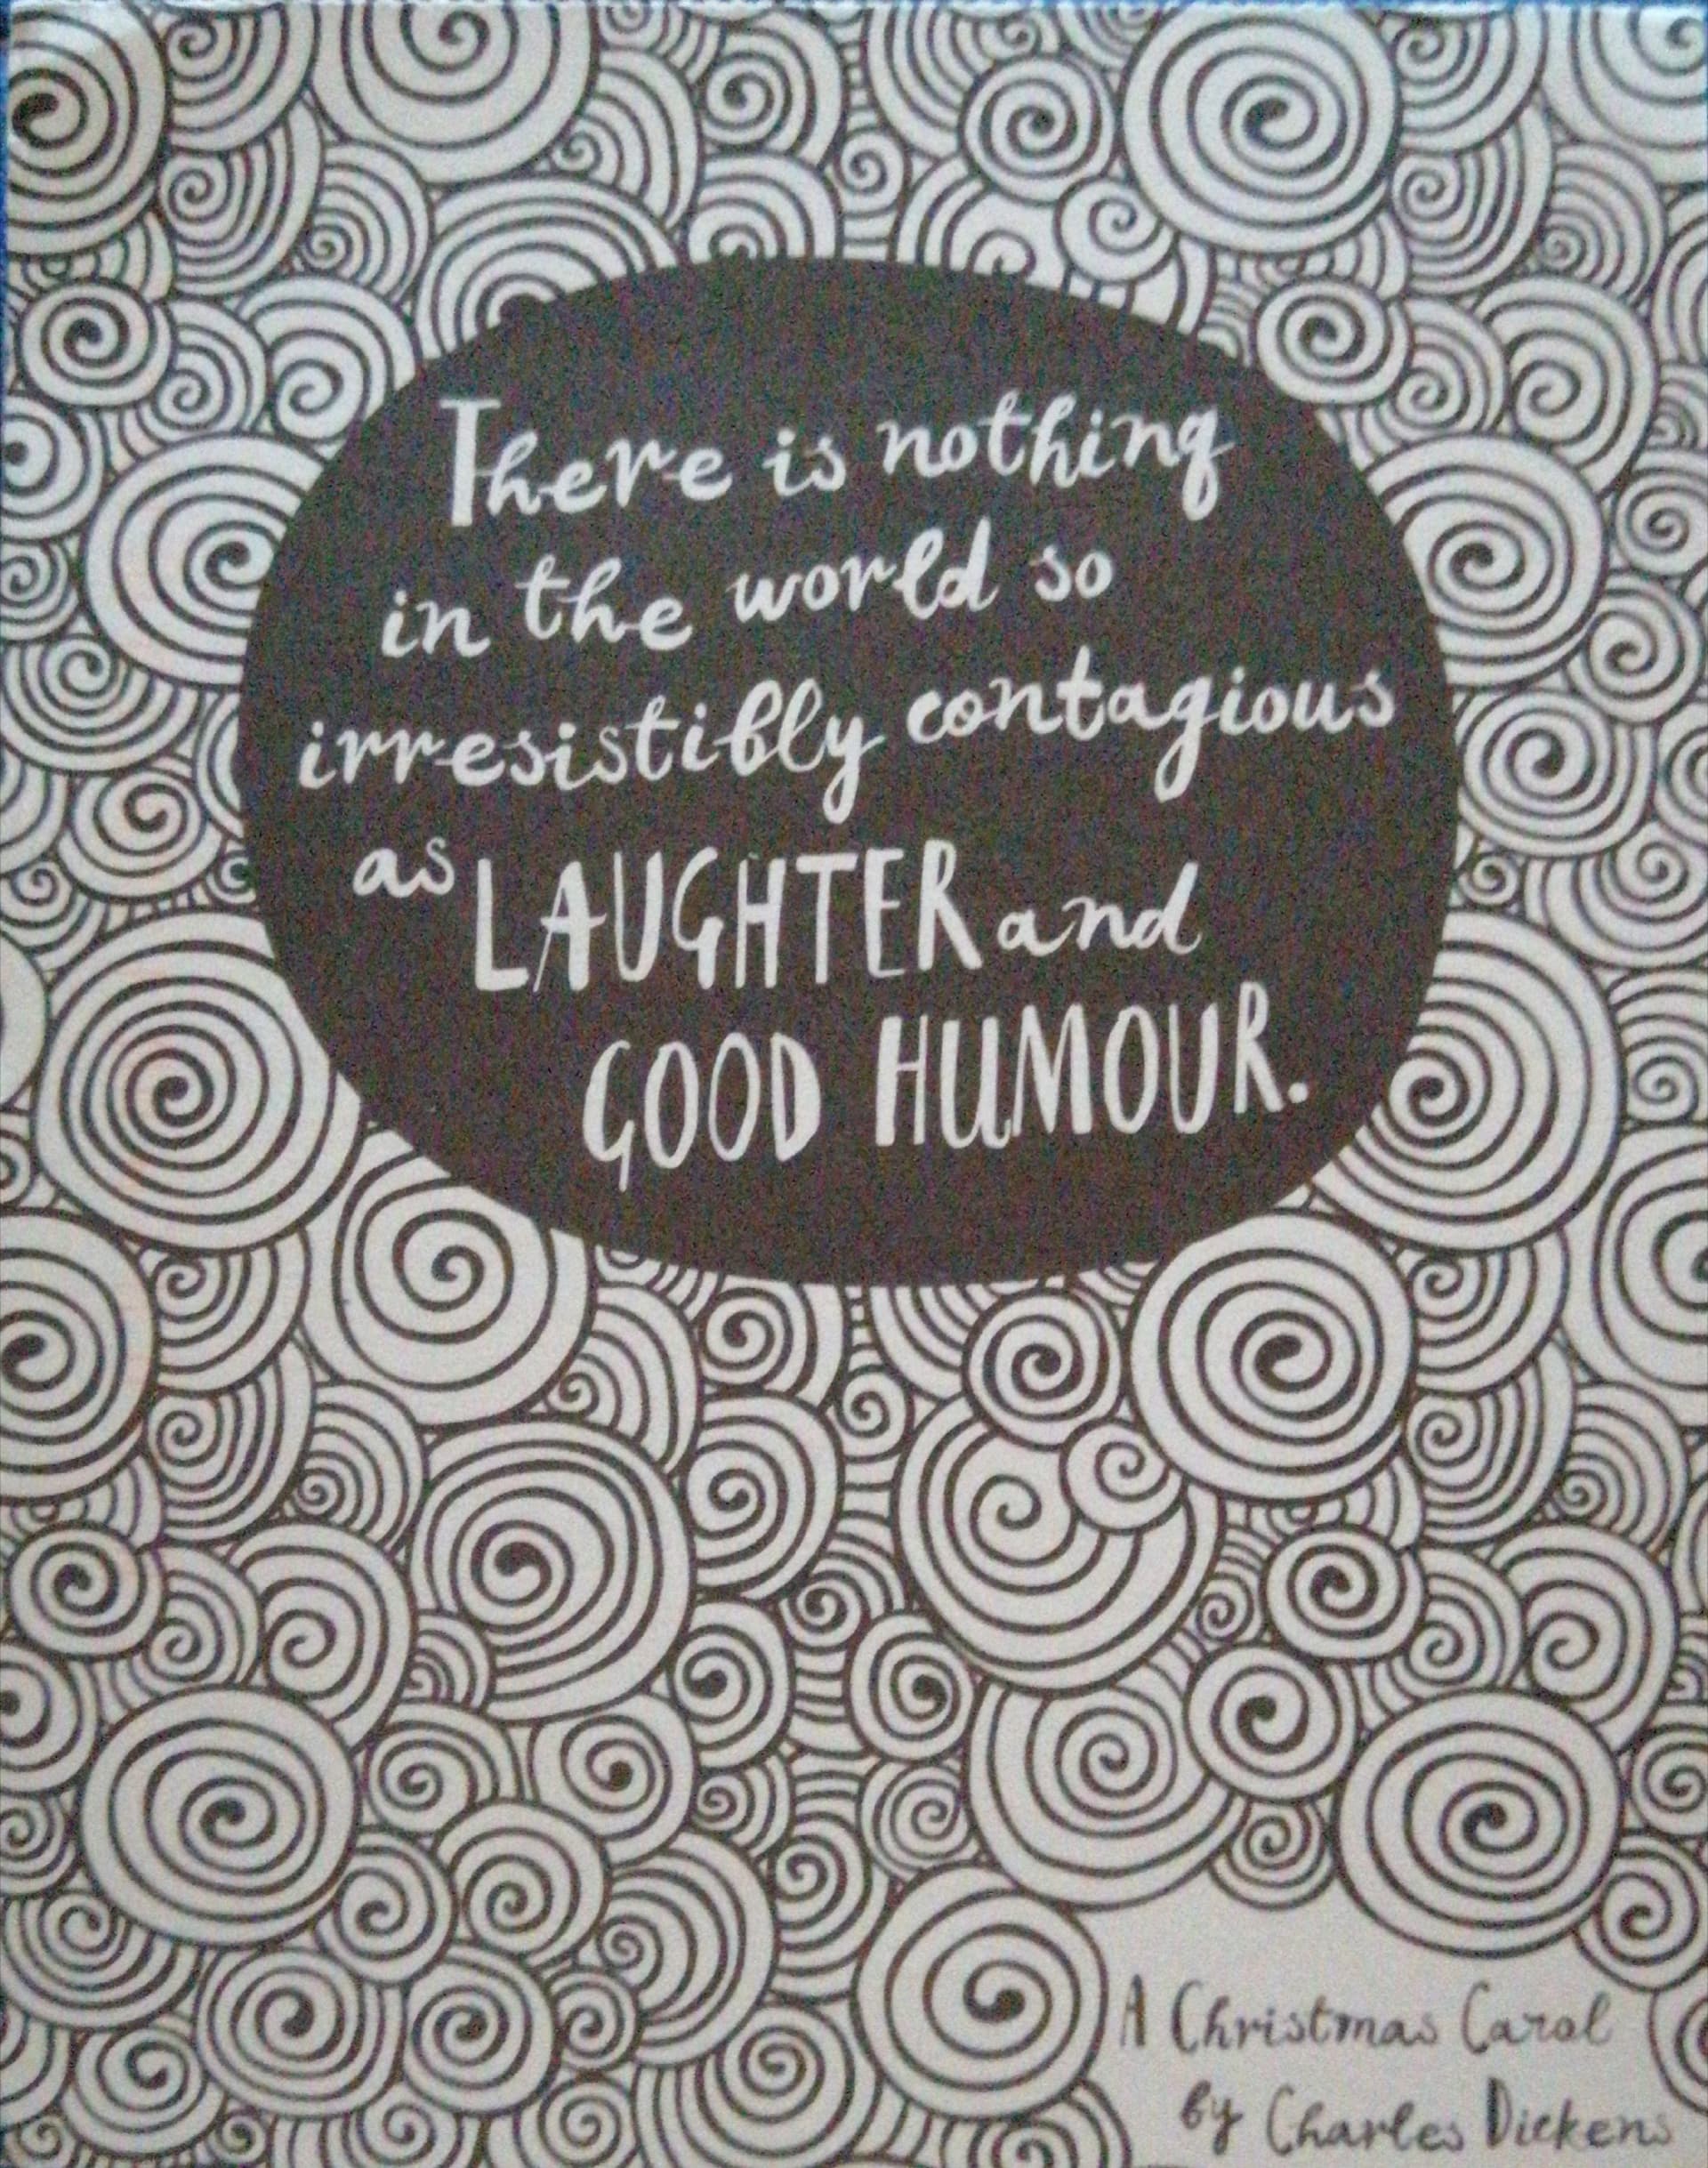 There is nothing
in the world so
irresistibly contagious
as LAUGHTER and
GOOD HUMOUR.
A Christmas Carol
by Charles Dickens